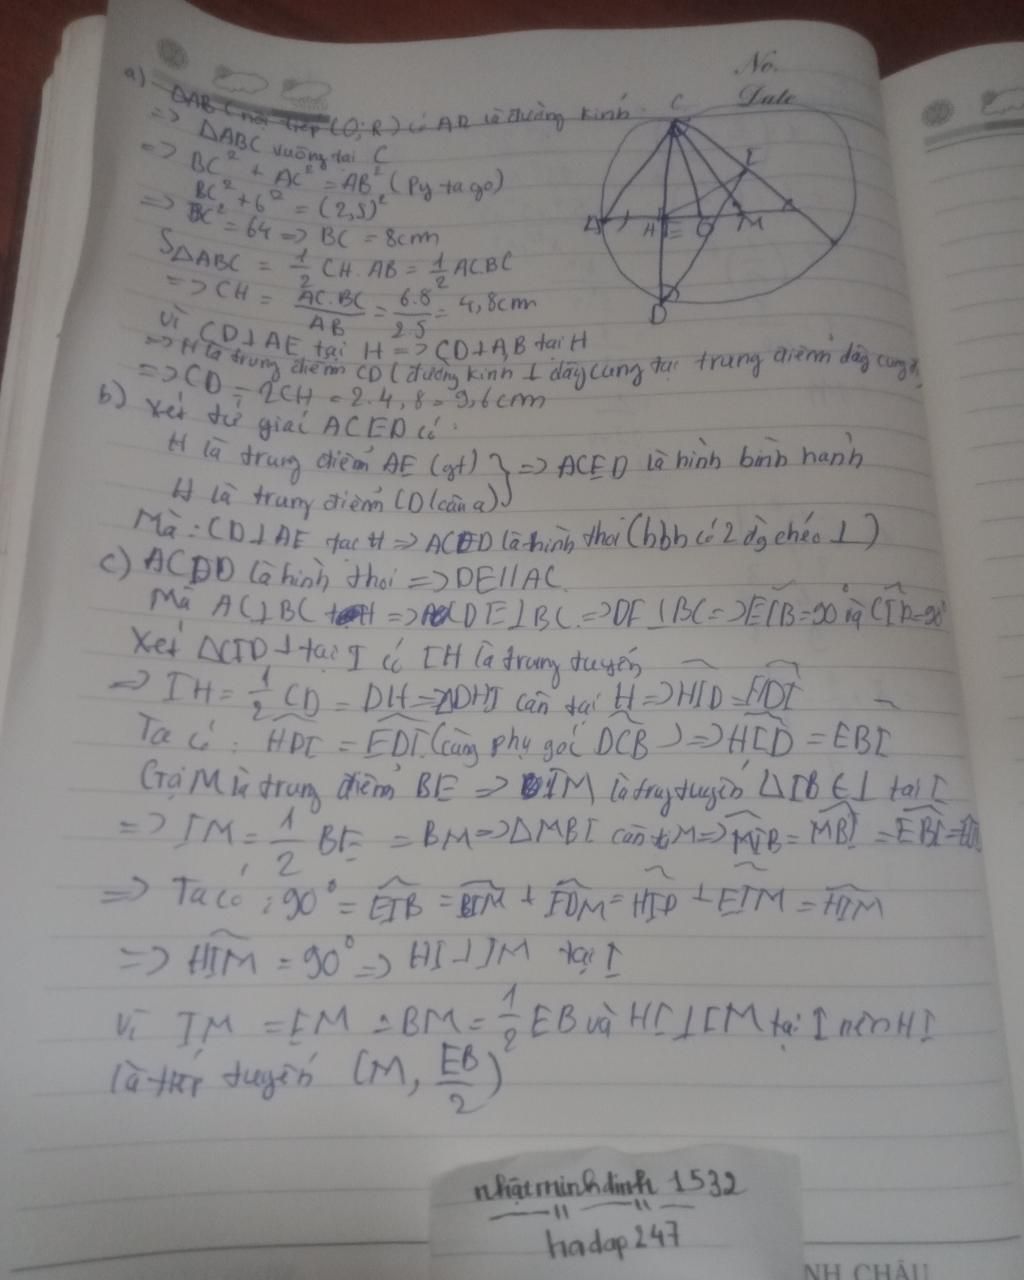 No.
Date
a) ΔABC nội tiếp (O;R) có AB là đường kính
=> ΔABC vuông tại C
=> BC² + AC² = AB² (Py ta go)
BC² + 6² = (2,5)²
=> BC² = 64 => BC = 8cm
SΔABC = 1/2 CH. AB = 1/2 AC.BC
=> CH = AC.BC/AB = 6.8/2.5 = 4,8cm
Vì CD⊥AE tại H => CD⊥AB tại H
=> H là trung điểm CD (đường kính ⊥ dây cung tại trung điểm dây cung
=> CD = 2CH = 2.4,8 = 9,6cm
b) Xét tứ giác ACED có:
H là trung điểm AE (gt) } => ACED là hình bình hành
H là trung điểm CD (câu a)
Mà: CD⊥AE tại H => ACED là hình thoi (hbh có 2 đg chéo ⊥)
c) ACDD là hình thoi => DE//AC
Mà AC⊥BC => DE⊥BC => DE⊥BC => EIB = 90° và CID = 90°
Xét ΔCID ⊥ tại I có IH là trung tuyến
=> IH = 1/2 CD = DH => ΔDHI cân tại H => HID = HDI
Ta có: HDI = EDI (cùng phụ góc DCB) => HID = EBI
Gọi M là trung điểm BE => IM là trung tuyến ΔIBE ⊥ tại I
=> IM = 1/2 BE = BM => ΔMBI cân tại M => MIB = MBI = EBI
=> Ta có: 90° = EIB = BIM + EDM = HID + EIM = HIM
=> HIM = 90° => HI⊥IM tại I
Vì IM = EM = BM = 1/2 EB và HI⊥IM tại I nên HI
là tiếp tuyến (M, EB/2)
C
I
A
H
O
M
D
nhatminhdinh 1532
hadap247
NH CHÂU